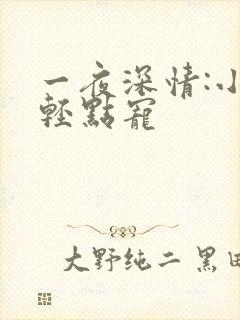 一夜深情:小
輕點寵
大野纯二 黑田